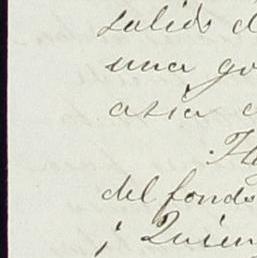 salido d
una go
asia a
Ha
del fondo
¡ Quien